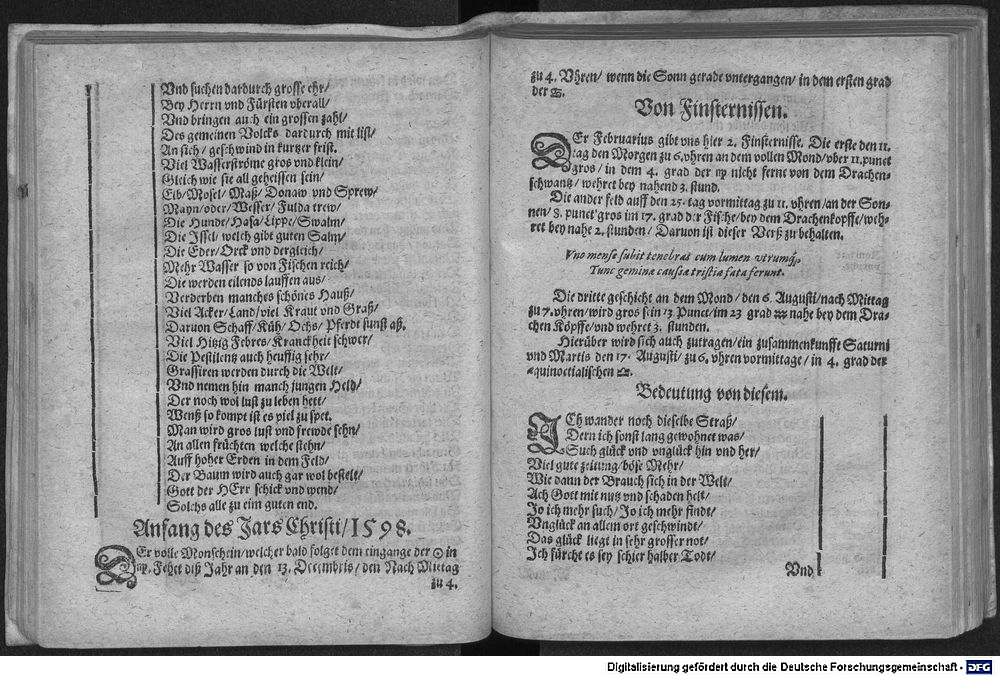 Vnd suchen dardurch grosse ehr/
Bey Herrn vnd Fürsten vberall/
Vnd bringen auch ein grossen zahl/
Des gemeinen Volcks dardurch mit list/
An sich/ geschwind in kurtzer frist.
Viel Wasserströme gros vnd klein/
Gleich wie sie all geheissen sein/
Elb/ Mosel/ Maß/ Donaw vnd Sprew/
Mayn/ oder/ Wesser/ Fulda trew/
Die Hunde/ Hasa/ Lippe/ Swalm/
Die Issel/ welch gibt guten Salm/
Die Eder/ Orck vnd dergleich/
Mehr Wasser so von Fischen reich/
Die werden eilends lauffen aus/
Verderben manches schönes Hauß/
Viel Acker/ Land/ viel Kraut vnd Graß/
Daruon Schaff/ Küh/ Ochs/ Pferdt sunst aß.
Viel Hitzig Febres/ Kranckheit schwer/
Die Pestilentz auch heuffig sehr/
Grassiren werden durch die Welt/
Vnd nemen hin manch jungen Held/
Der noch wol lust zu leben hett/
Wenß so kompt ist es viel zu spet.
Man wird gros lust vnd frewde sehn/
An allen früchten welche stehn/
Auff hoher Erden in dem Feld/
Der Baum wird auch gar wol bestelt/
Gott der HErr schick vnd wend/
Solchs alle zu eim guten end.
Anfang des Jars Christi/ 1598.
DEr volle Monschein/ welcher bald folget dem eingange der ☉ in
♍. Fehet diß Jahr an den 13. Decembris/ den Nach Mittag
zu 4.
zu 4. Vhren/ wenn die Sonn gerade vntergangen/ in dem ersten grad
der ♋.
Von Finsternissen.
DEr Februarius gibt vns hier 2. Finsternisse. Die erste den 11.
tag den Morgen zu 6. vhren an dem vollen Mond/ vber 11. punct
gros/ in dem 4. grad der ♍ nicht ferne von dem Drachen-
schwantz/ wehret bey nahend 3. stund.
Die ander felt auff den 25. tag vormittag zu 11. vhren/ an der Son-
nen/ 8. punct gros im 17. grad der Fische/ bey dem Drachenkopffe/ weh-
ret bey nahe 2. stunden/ Daruon ist dieser Verß zu behalten.
Vno mense subit tenebras cum lumen vtrumq́;
Tunc geminæ causæ tristia fata ferunt.
Die dritte geschicht an dem Mond/ den 6. Augusti/ nach Mittag
zu 7. vhren/ wird gros sein 13 Punct/ im 23 grad ♒ nahe bey dem Dra-
chen Köpffe/ vnd wehret 3. stunden.
Hierüber wird sich auch zutragen/ ein zusammenkunfft Saturni
vnd Martis den 17. Augusti/ zu 6. vhren vormittage/ in 4. grad der
æquinoctialischen ♎.
Bedeutung von diesem.
ICh wander noch dieselbe Straß/
Dern ich sonst lang gewohnet was/
Such glück vnd vnglück hin vnd her/
Viel gute zeitung/ böse Mehr/
Wie dann der Brauch sich in der Welt/
Ach Gott mit nutz vnd schaden helt/
Jo ich mehr such/ Jo ich mehr findt/
Vnglück an allem ort geschwindt/
Das glück liegt in sehr grosser not/
Ich fürcht es sey schier halber Todt/
Vnd
Digitalisierung gefördert durch die Deutsche Forschungsgemeinschaft - DFG